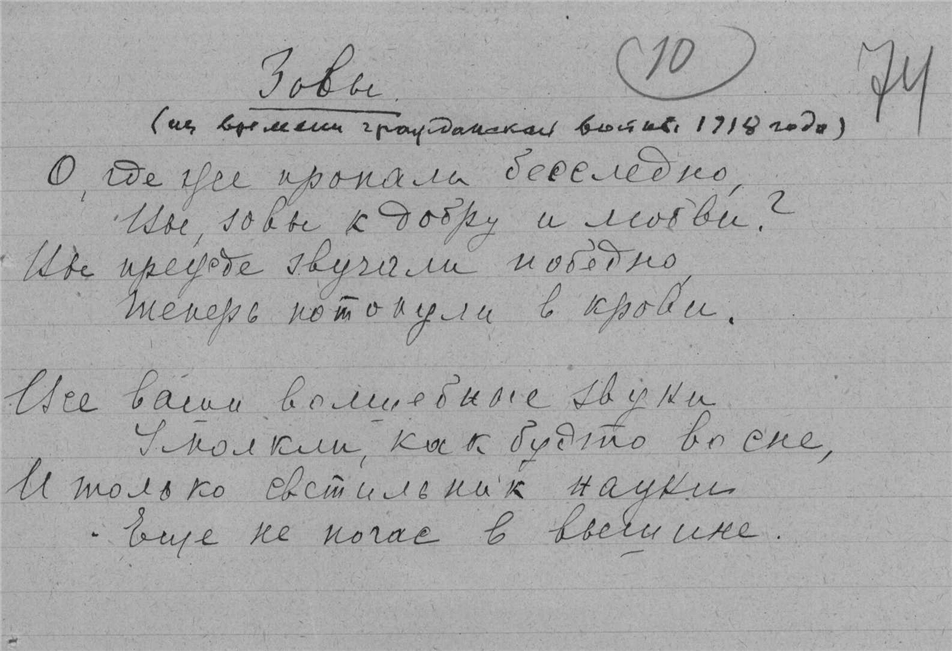 10
74
Зовы.
(из времени гражданской войны 1918 года)
О, где же пропали бесследно,
Вы, зовы к добру и любви?
Вы прежде звучали победно,
Теперь потонули в крови.
Все ваши волшебные звуки
Умолкли, как будто во сне,
И только светильник науки
Еще не погас в вышине.